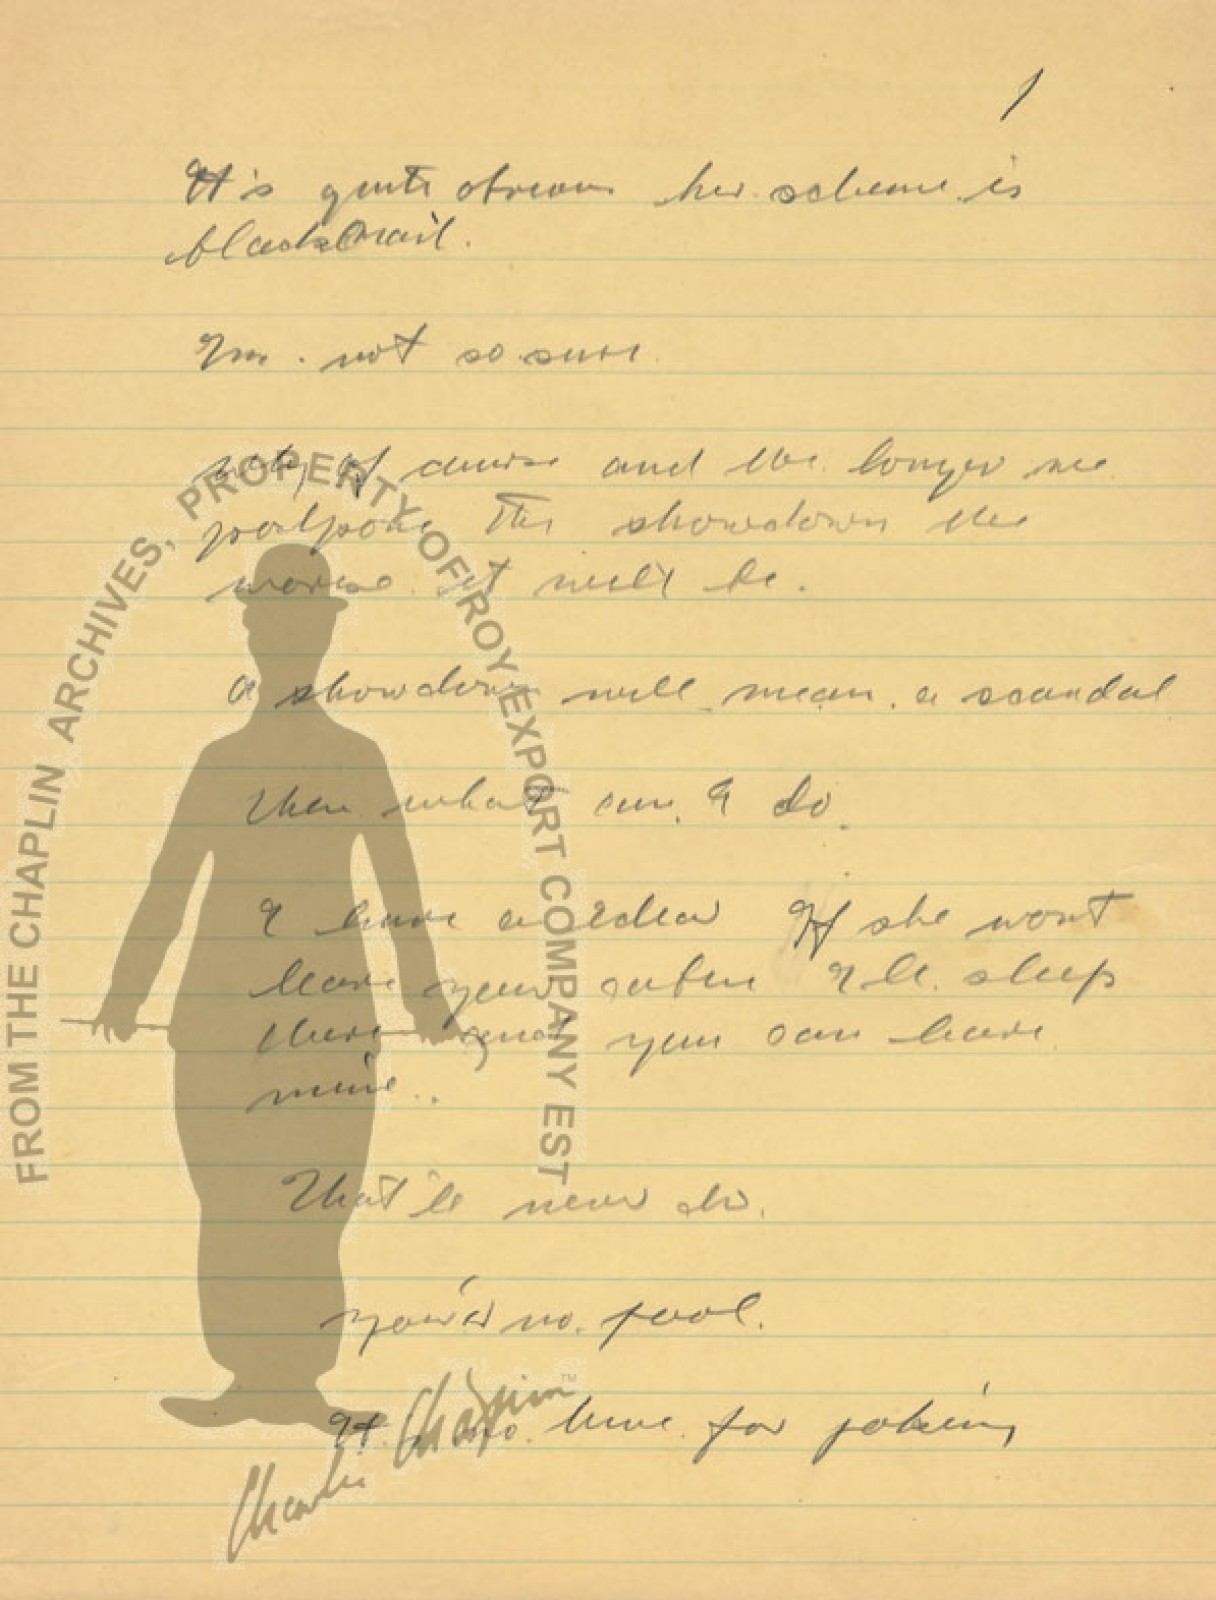 1
It's quite obvious her scheme is
blackmail.
I'm not so sure.
of course and the longer we
postpone the showdown the
worse it will be.
a showdown will mean a scandal
Then what can I do.
I have an idea If she wont
leave your cabin I'll sleep
there and you can have
mine.
That'll never do.
no fool.
It no time for joking
FROM THE CHAPLIN ARCHIVES, PROPERTY OF ROY EXPORT COMPANY EST
Charlie Chaplin™